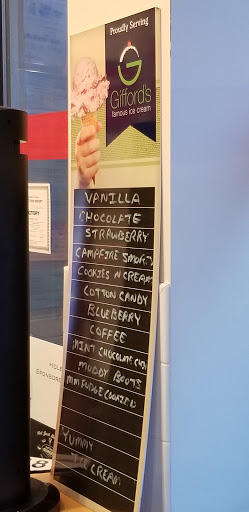 Proudly Serving
G
Gifford's
famous ice cream
VANILLA
CHOCOLATE
STRAWBERRY
CAMPFIRE
COOKIES N CREAM
COTTON CANDY
BLUEBERRY
COFFEE
MINT CHOCOLATE CHIP
MUDDY BOOTS
MM FUDGE COOKIED
YUMMY
ICE CREAM
8